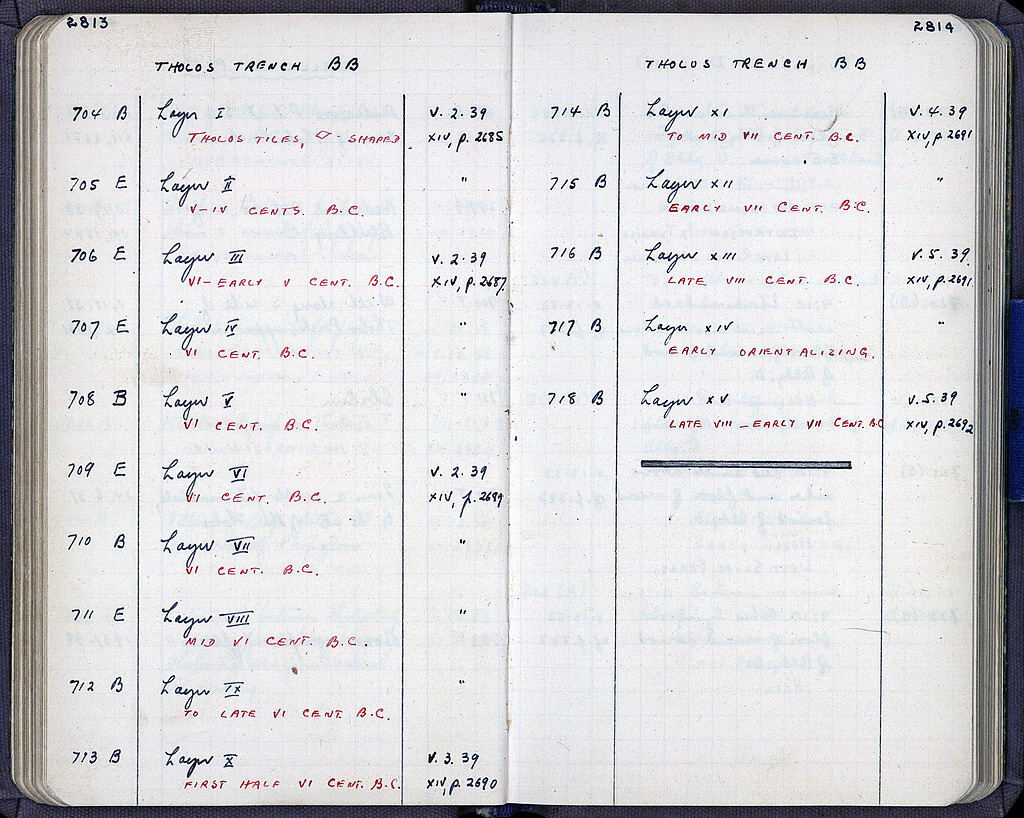 2813
THOLOS TRENCH BB
704 B Layer I V. 2. 39
THOLOS TILES, ◇-SHAPED XIV, p. 2685
705 E Layer II "
V-IV CENTS. B.C.
706 E Layer III V. 2. 39
VI-EARLY V CENT. B.C. XIV, p. 2687
707 E Layer IV "
VI CENT. B.C.
708 B Layer V "
VI CENT. B.C.
709 E Layer VI V. 2. 39
VI CENT. B.C. XIV, p. 2689
710 B Layer VII "
VI CENT. B.C.
711 E Layer VIII "
MID VI CENT. B.C.
712 B Layer IX "
TO LATE VI CENT. B.C.
713 B Layer X V. 3. 39
FIRST HALF VI CENT. B.C. XIV, p. 2690
2814
THOLOS TRENCH BB
714 B Layer XI V. 4. 39
TO MID VII CENT. B.C. XIV, p 2691
715 B Layer XII "
EARLY VII CENT. B.C.
716 B Layer XIII V. 5. 39.
LATE VIII CENT. B.C. XIV, p. 2691
717 B Layer XIV "
EARLY ORIENTALIZING.
718 B Layer XV V. 5. 39
LATE VIII - EARLY VII CENT. B.C XIV, p. 2692